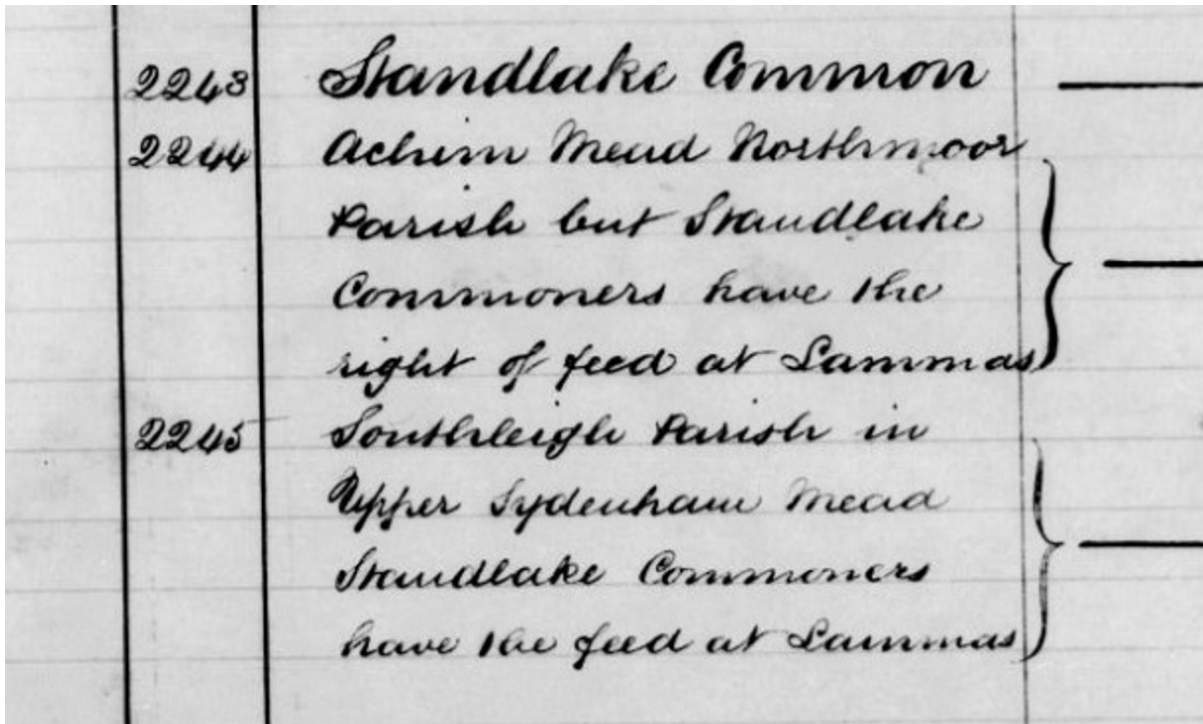 2243 Standlake Common
2244 Achim Mead Northmoor
Parish but Standlake
Commoners have the
right of feed at Lammas
2245 Southleigh Parish in
Upper Sydenham Mead
Standlake Commoners
have the feed at Lammas